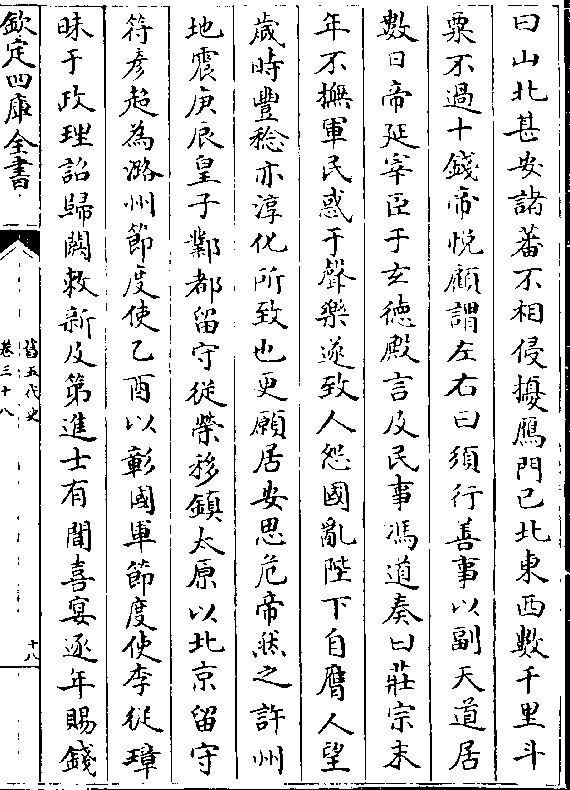 曰山北甚安諸蕃不相侵擾鴈門已北東西數千里斗
粟不過十錢帝悅顧謂左右曰須行善事以副天道居
數日帝延宰臣于玄德殿言及民事馮道奏曰莊宗末
年不撫軍民惑于聲樂遂致人怨國亂陛下自膺人望
歲時豐稔亦淳化所致也更願居安思危帝然之許州
地震庚辰皇子鄴都留守從榮移鎮太原以北京留守
符彥超為潞州節度使乙酉以彰國軍節度使李從璋
昧于政理詔歸闕敕新及第進士有聞喜宴逐年賜錢
欽定四庫全書
舊五代史
卷三十八
十八